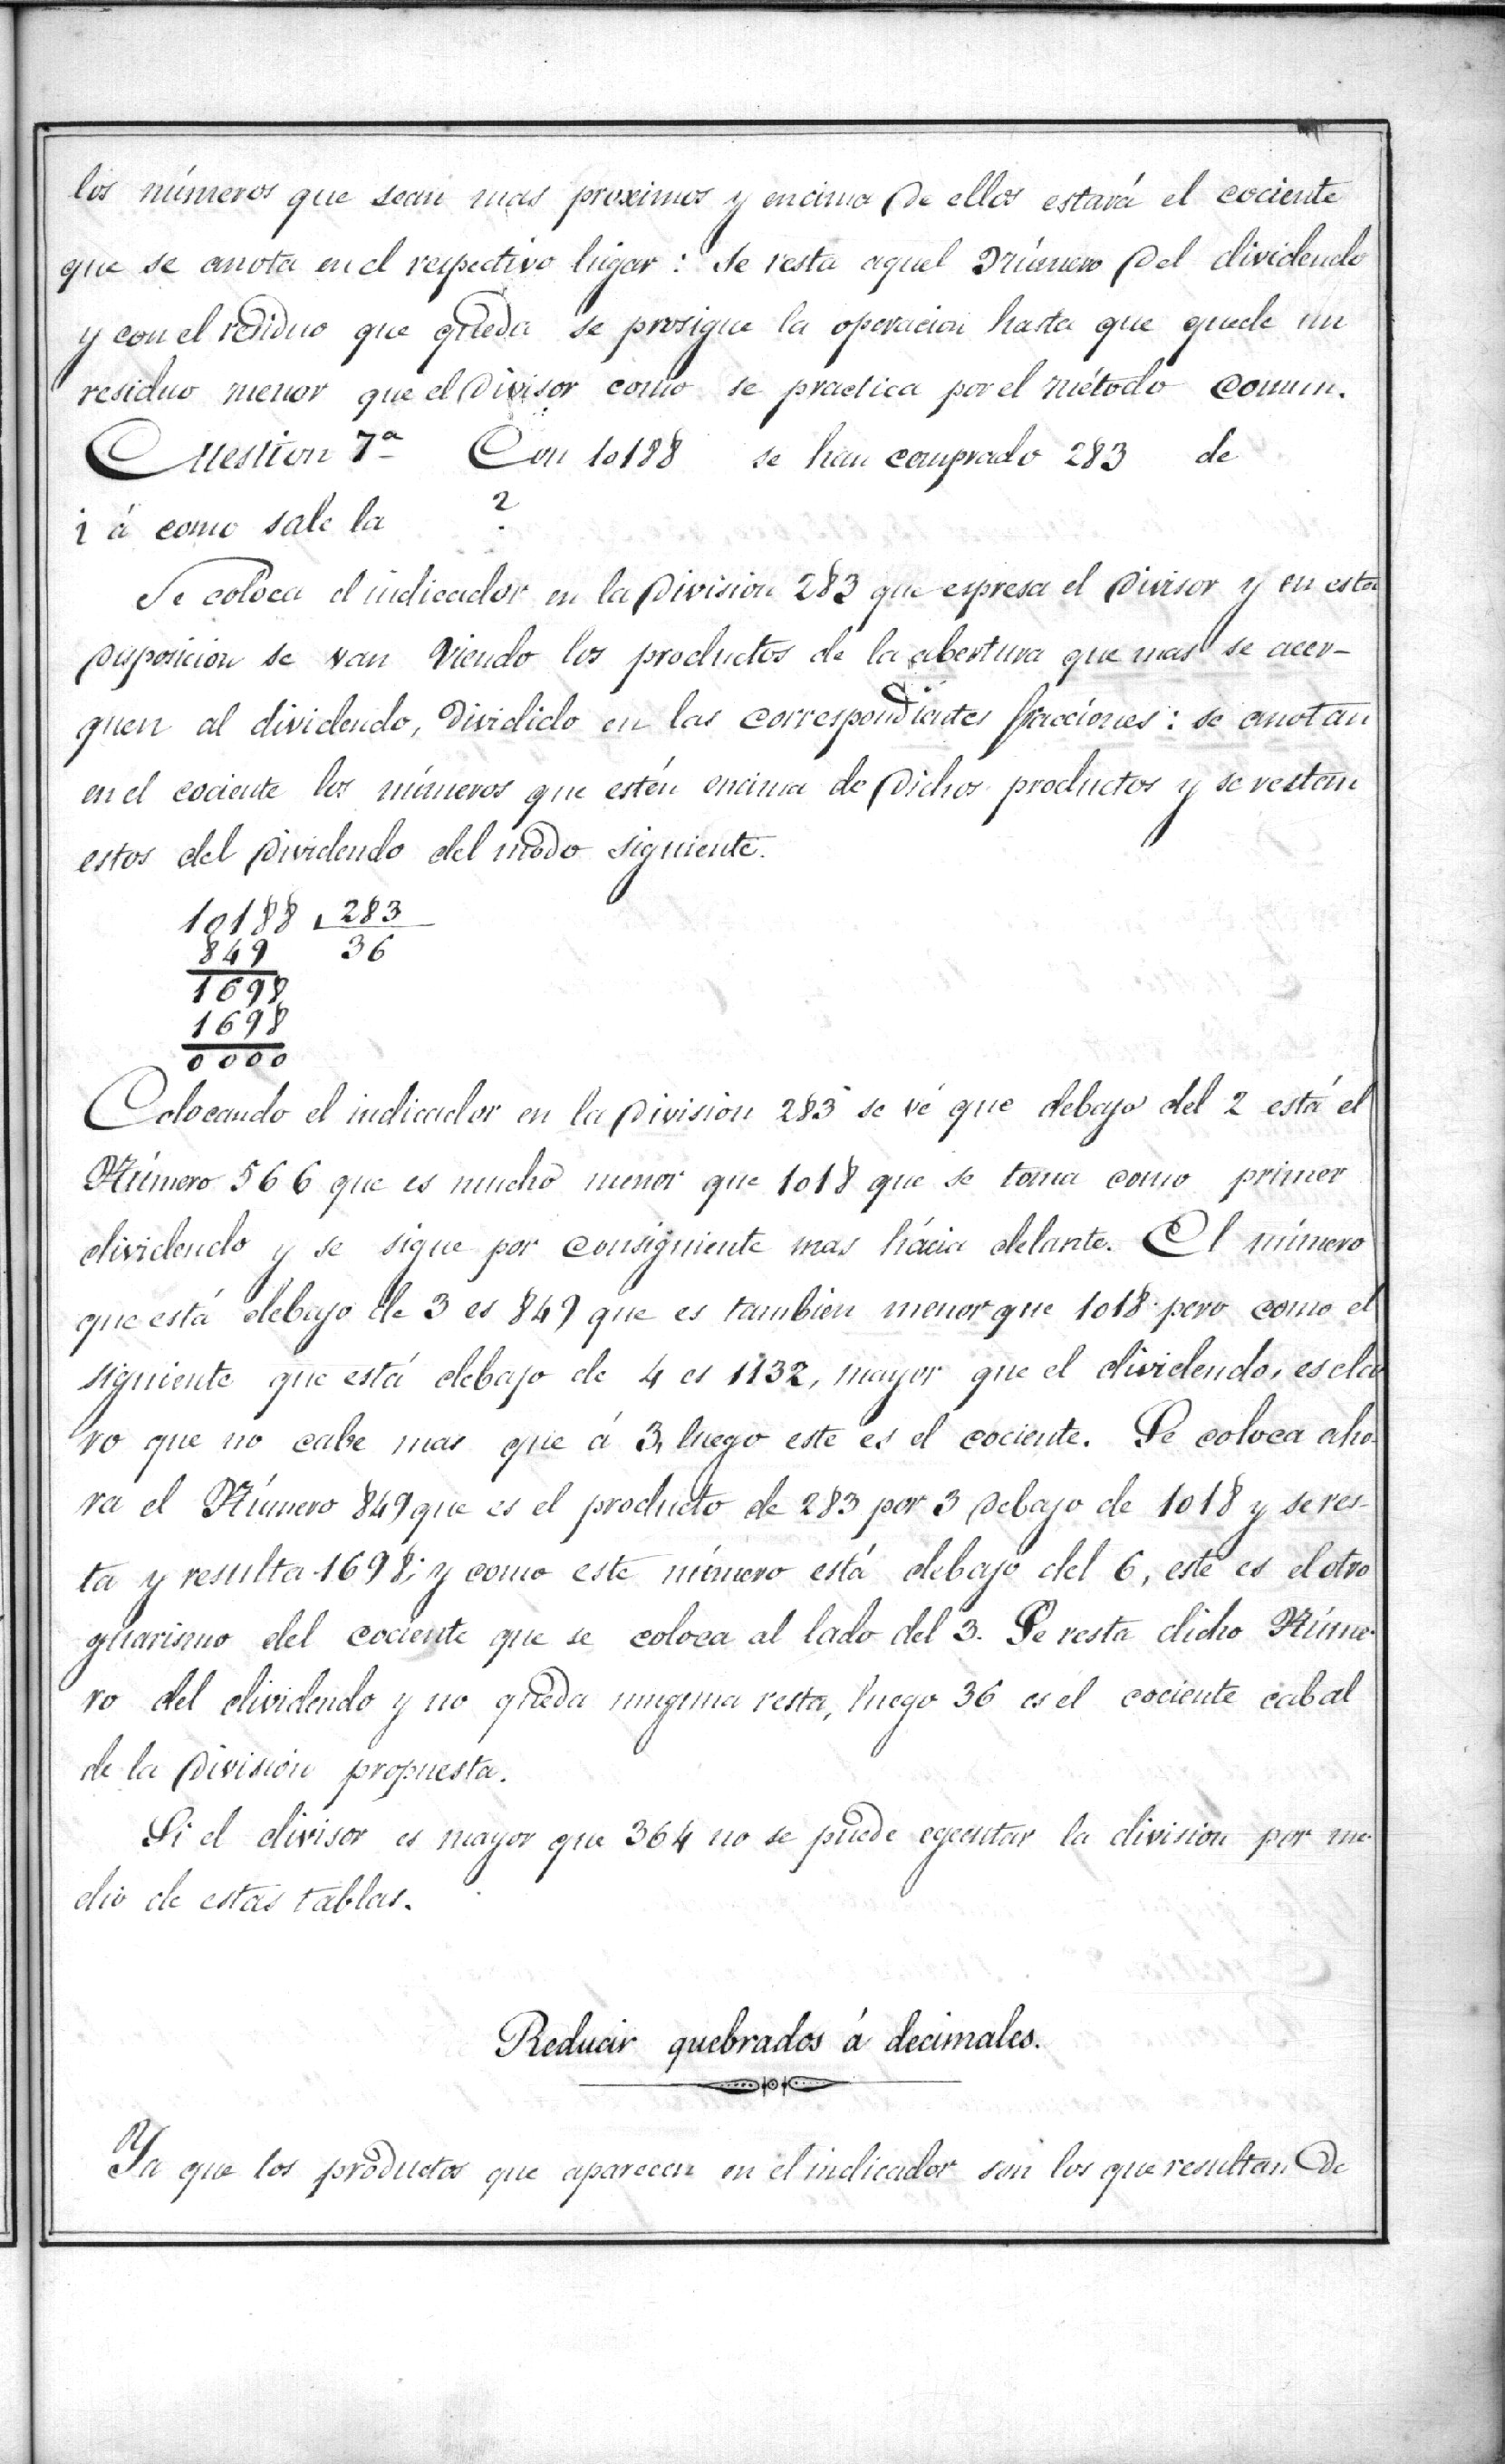 los números que sean mas proximos y encima de ellos estará el cociente
que se anota en el respectivo lugar: Se resta aquel Número del dividendo
y con el residuo que queda se prosigue la operacion hasta que quede un
residuo menor que el Divisor como se practica por el método comun.
Cuestion 7ª Con 10188 se han comprado 283 de
¿ á como sale la ?
Se coloca el indicador en la Division 283 que espresa el Divisor y en esta
Disposicion se van viendo los productos de la abertura que mas se acer-
quen al dividendo, Dividido en las correspondientes fracciones: se anotan
en el cociente los números que estén encima de Dichos productos y se restan
estos del Dividendo del modo siguiente.
10188 283
849 36
1698
1698
0000
Colocando el indicador en la Division 283 se vé que debajo del 2 está el
Número 566 que es mucho menor que 1018 que se toma como primer
dividendo y se sigue por consiguiente mas hácia delante. El número
que está debajo de 3 es 849 que es tambien menor que 1018 pero como el
siguiente que está debajo de 4 es 1132, mayor que el dividendo, es cla
ro que no cabe mas que á 3, luego este es el cociente. Se coloca aho-
ra el Número 849 que es el producto de 283 por 3 Debajo de 1018 y se res-
ta y resulta 1698; y como este número está debajo del 6, este es el otro
guarismo del cociente que se coloca al lado del 3. Se resta dicho Núme-
ro del dividendo y no queda ninguna resta, luego 36 es el cociente cabal
de la Division propuesta.
Si el divisor es mayor que 364 no se puede egecutar la division por me-
dio de estas tablas.
Reducir quebrados á decimales.
Ya que los productos que aparecen en el indicador son los que resultan De